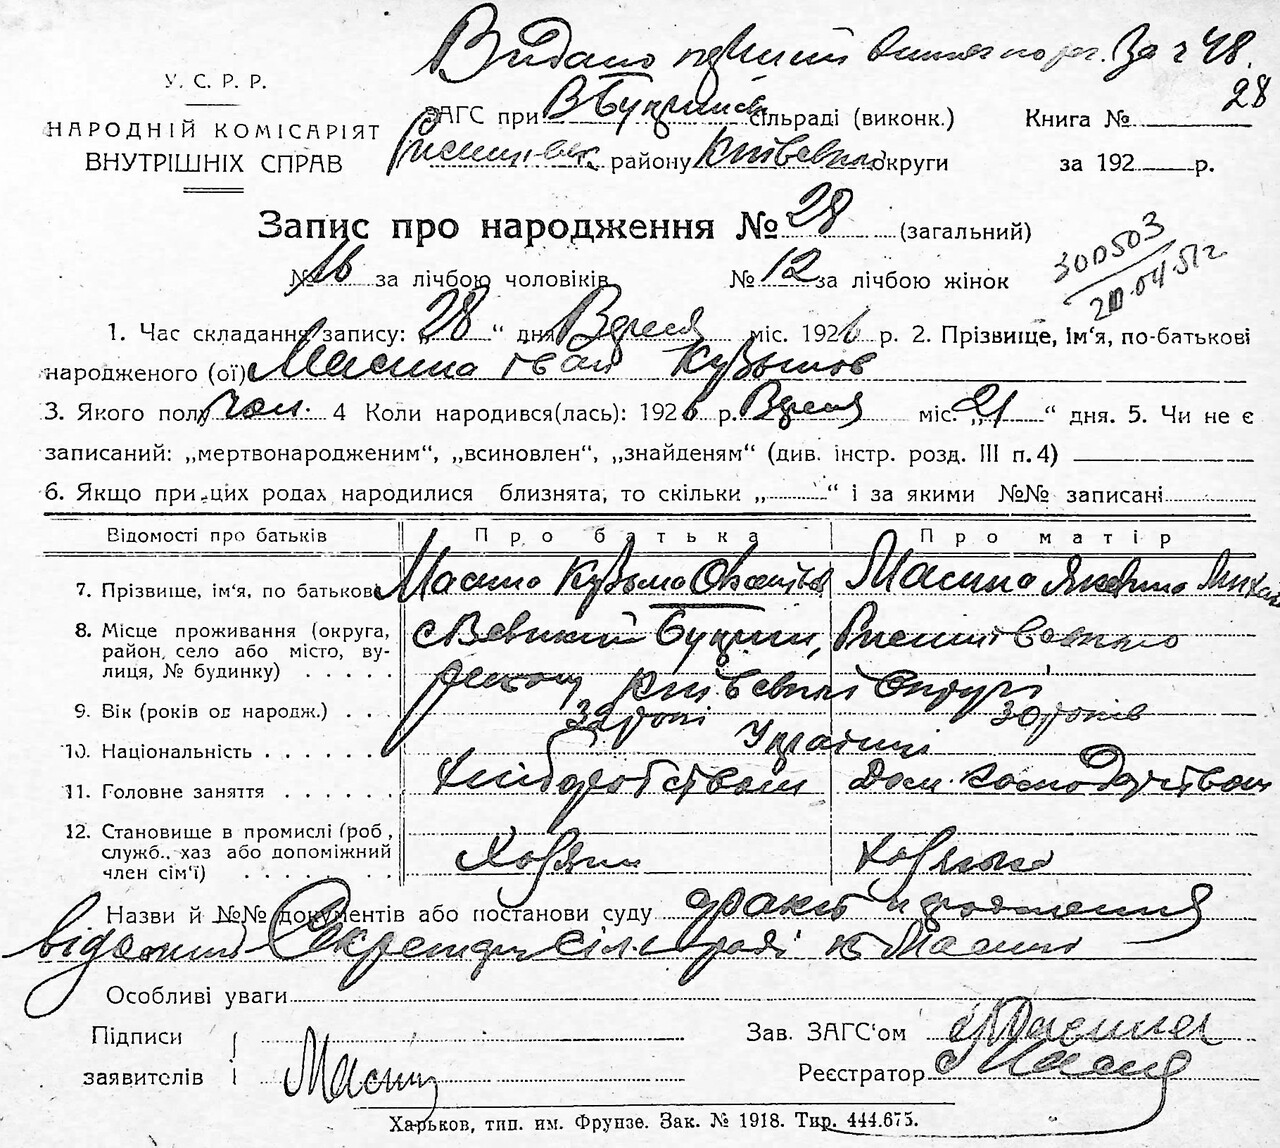 Видано за ч 48.
28
У. С. Р. Р.
НАРОДНІЙ КОМІСАРІЯТ
ВНУТРІШНІХ СПРАВ
ЗАГС при В Букринській сільраді (виконк.)
Книга №
району Київської округи
за 192 р.
Запис про народження № 28 (загальний)
№ 16 за лічбою чоловіків
№ 12 за лічбою жінок
300503
20.04.51 г
1. Час складання запису: „28“ дня Вересня міс. 1926 р. 2. Прізвище, Ім'я, по-батькові
народженого (ої) Масино Іван Кузьмов
3. Якого полу чол. 4 Коли народився(лась): 1926 р. Вересня міс. „21“ дня. 5. Чи не є
записаний: „мертвонародженим“, „всиновлен“, „знайденям“ (див. інстр. розд. III п. 4)
6. Якщо при цих родах народилися близнята, то скільки „ “ і за якими №№ записані
Відомості про батьків
Про батька
Про матір
7. Прізвище, ім'я, по батькові
Масино Кузьма
Масино Михай
8. Місце проживання (округа,
район, село або місто, ву-
лиця, № будинку)
с Великий Букрин,
району Київської Округи
9. Вік (років од народж.)
32 роки
30 років
10. Національність
Українці
11. Головне заняття
Хліборобством
Дом. господарством
12. Становище в промислі (роб,
служб., хаз або допоміжний
член сім'ї)
Хозяїн
Хозяйка
Назви й №№ документів або постанови суду
Секретар сільради Масино
Особливі уваги
Підписи
заявителів
Масин
Зав. ЗАГС'ом
Реєстратор
Харьков, тип. им. Фрунзе. Зак. № 1918. Тир. 444.675.